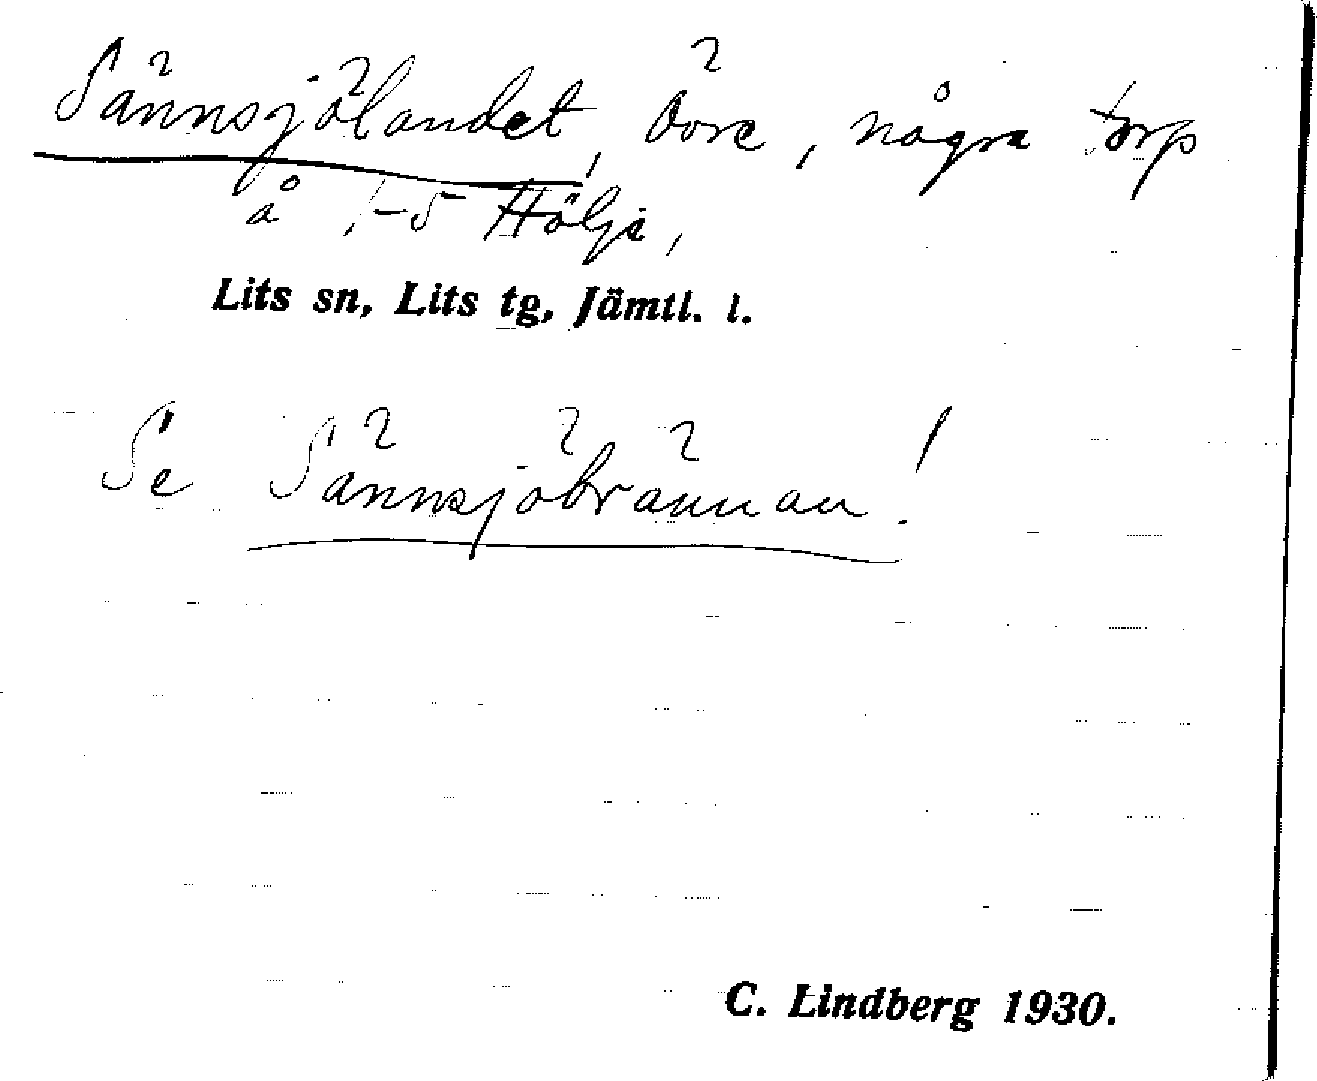 Sännsjölandet, övre, några torp
å 1-5 Hölje,
Lits sn, Lits tg, Jämtl. l.
Se Sännsjöbrännan!
C. Lindberg 1930.